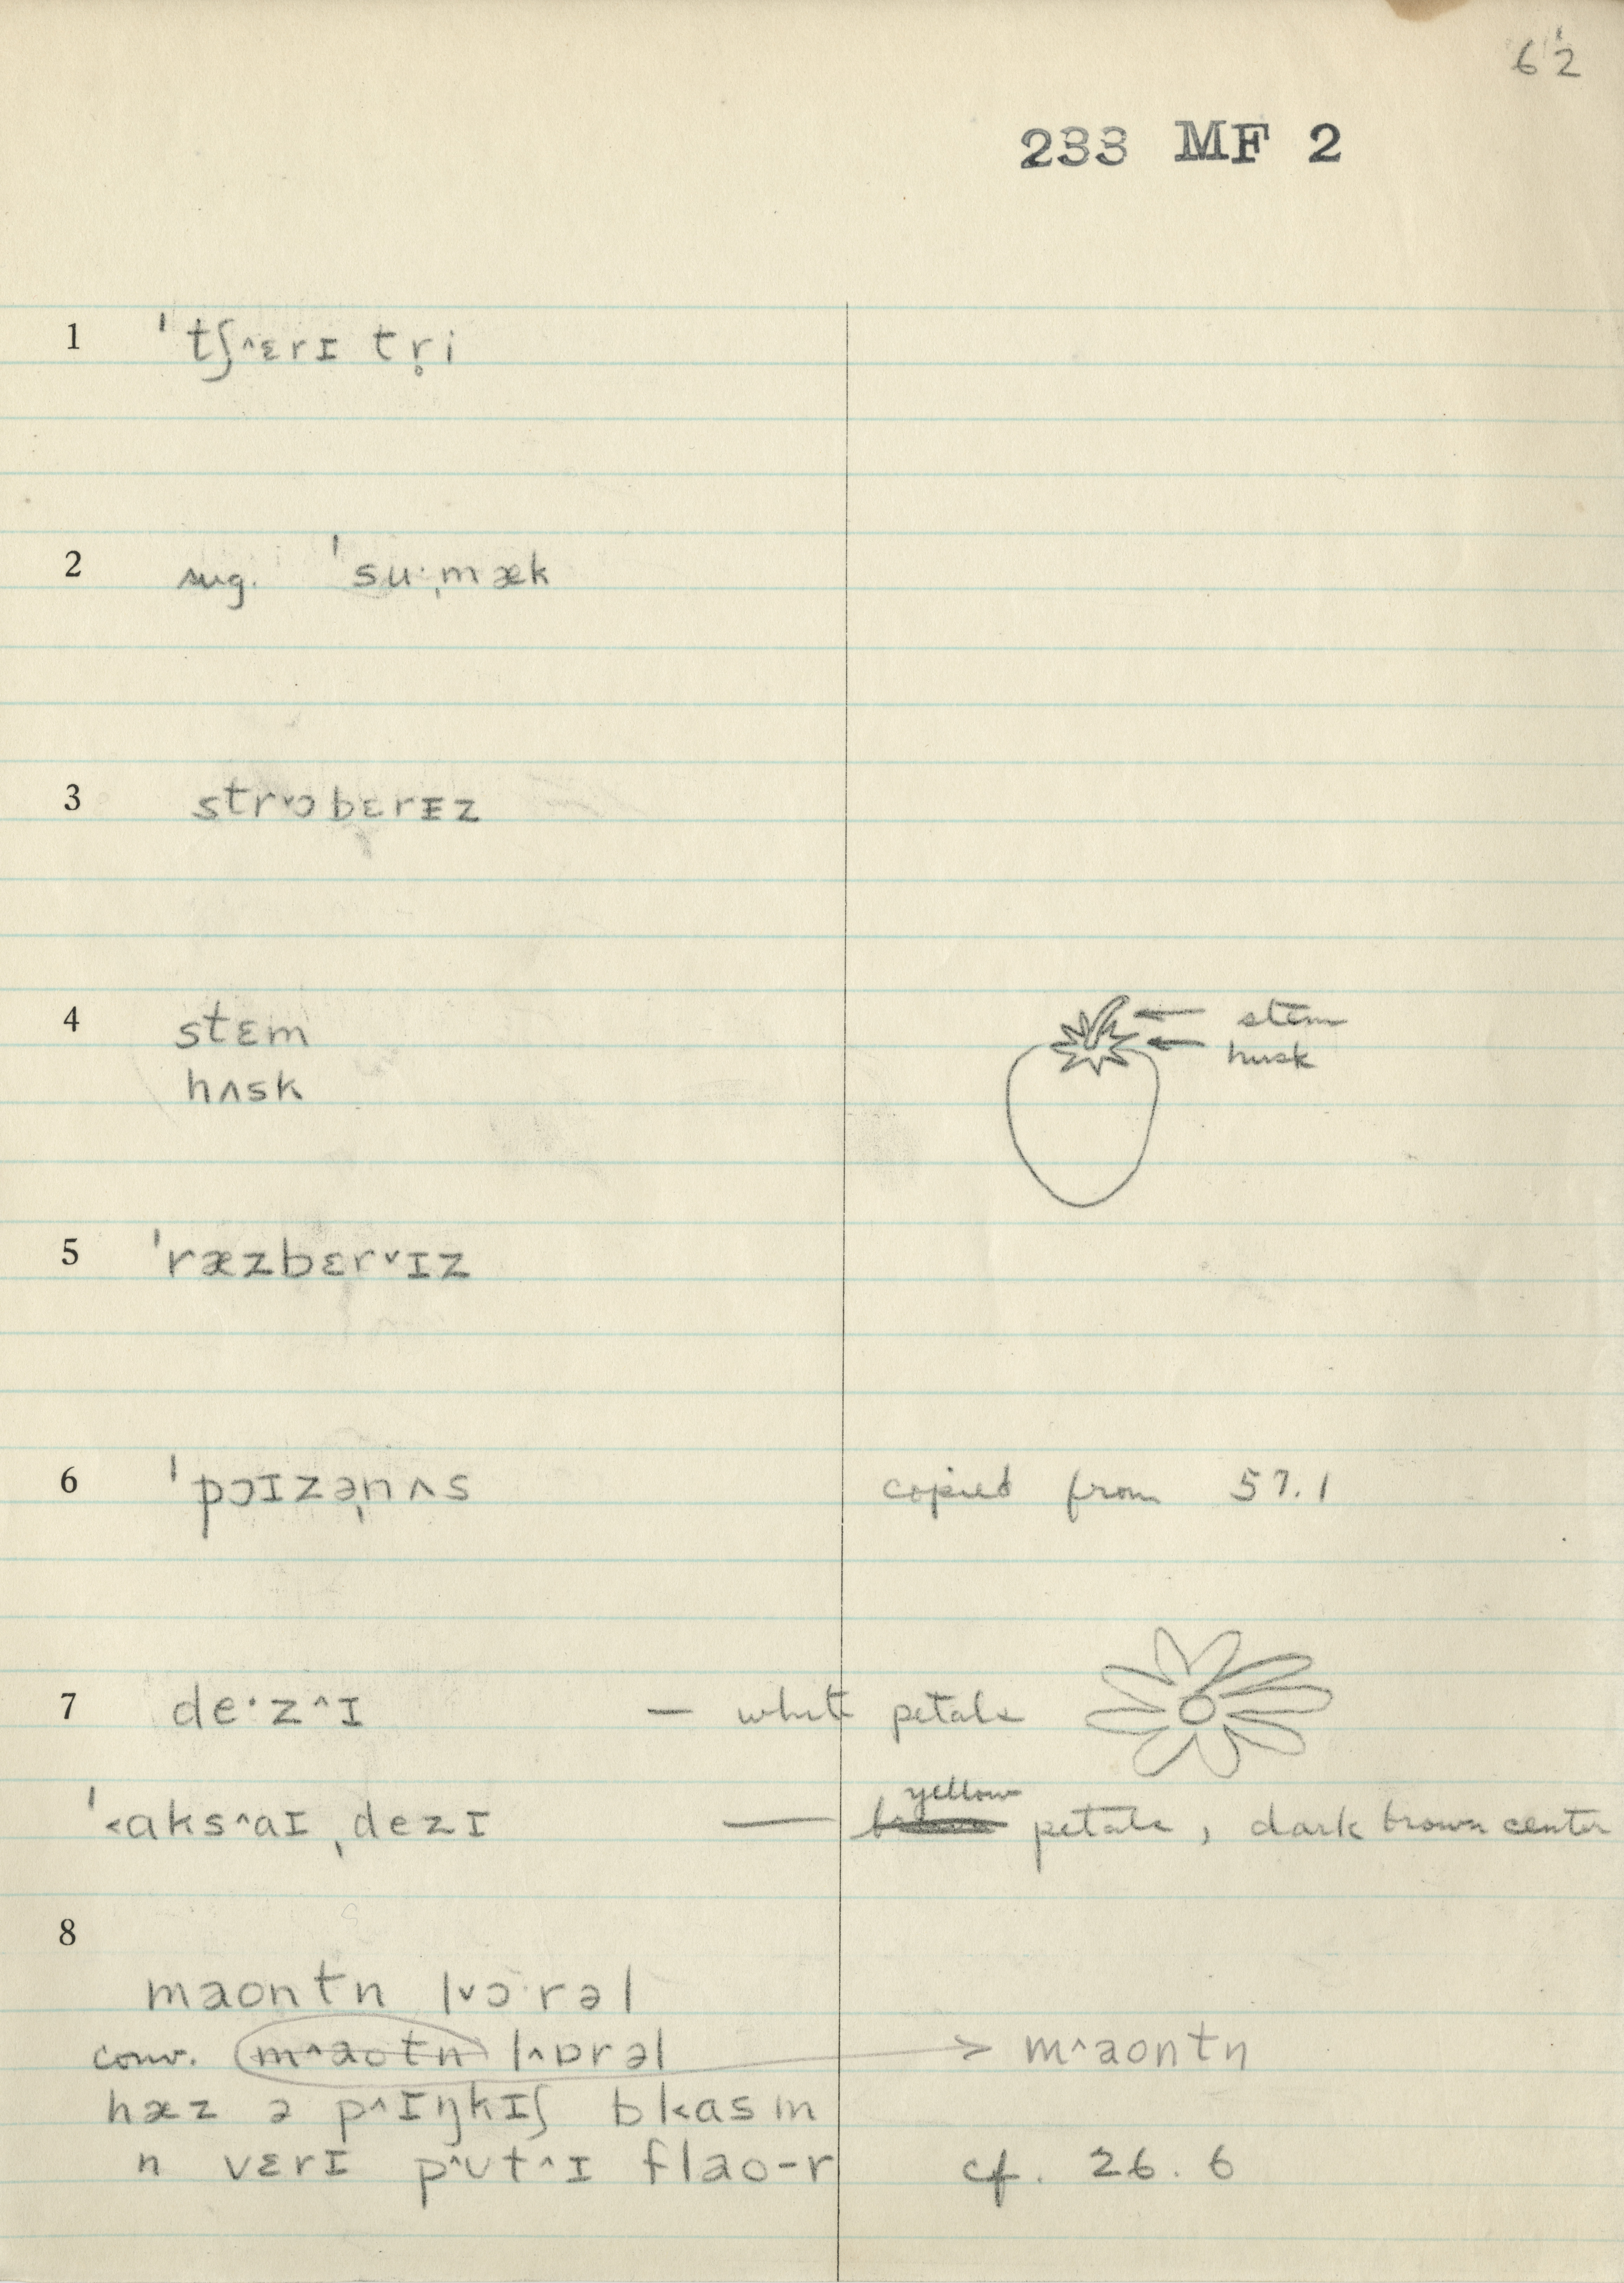 62
233 MF 2
1 ˈtʃ^ɛrɪ tr̥i
2 sug. ˈsuˑˌmæk
3 str˅ɔbɛrɪz
4 stɛm
stem
husk
hʌsk
5 ˈræzbɛr˅ɪz
6 ˈpɔɪzəˌnʌs copied from 57.1
7 deˑz^ɪ — white petals
yellow
ˈ˂aks^aɪˌdezɪ — petals, dark brown center
8
maontn l˅ɔˑrəl
conv. m^aotn l^ɒrəl > m^aontn
hæz ə p^ɪŋkɪʃ bl˂asm
n vɛrɪ p^ʊt^ɪ flao-r cf. 26.6